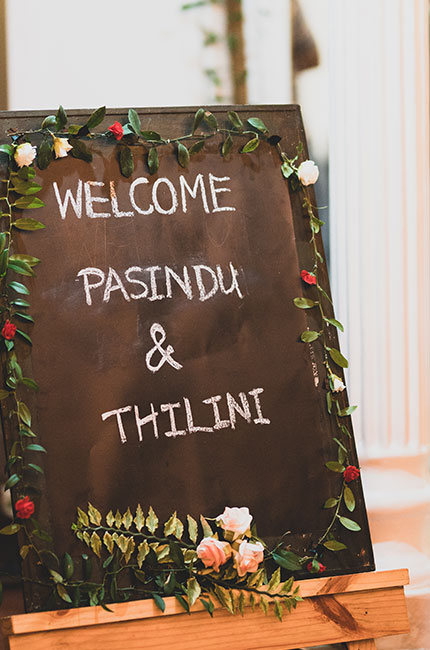 WELCOME
PASINDU
&
THILINI